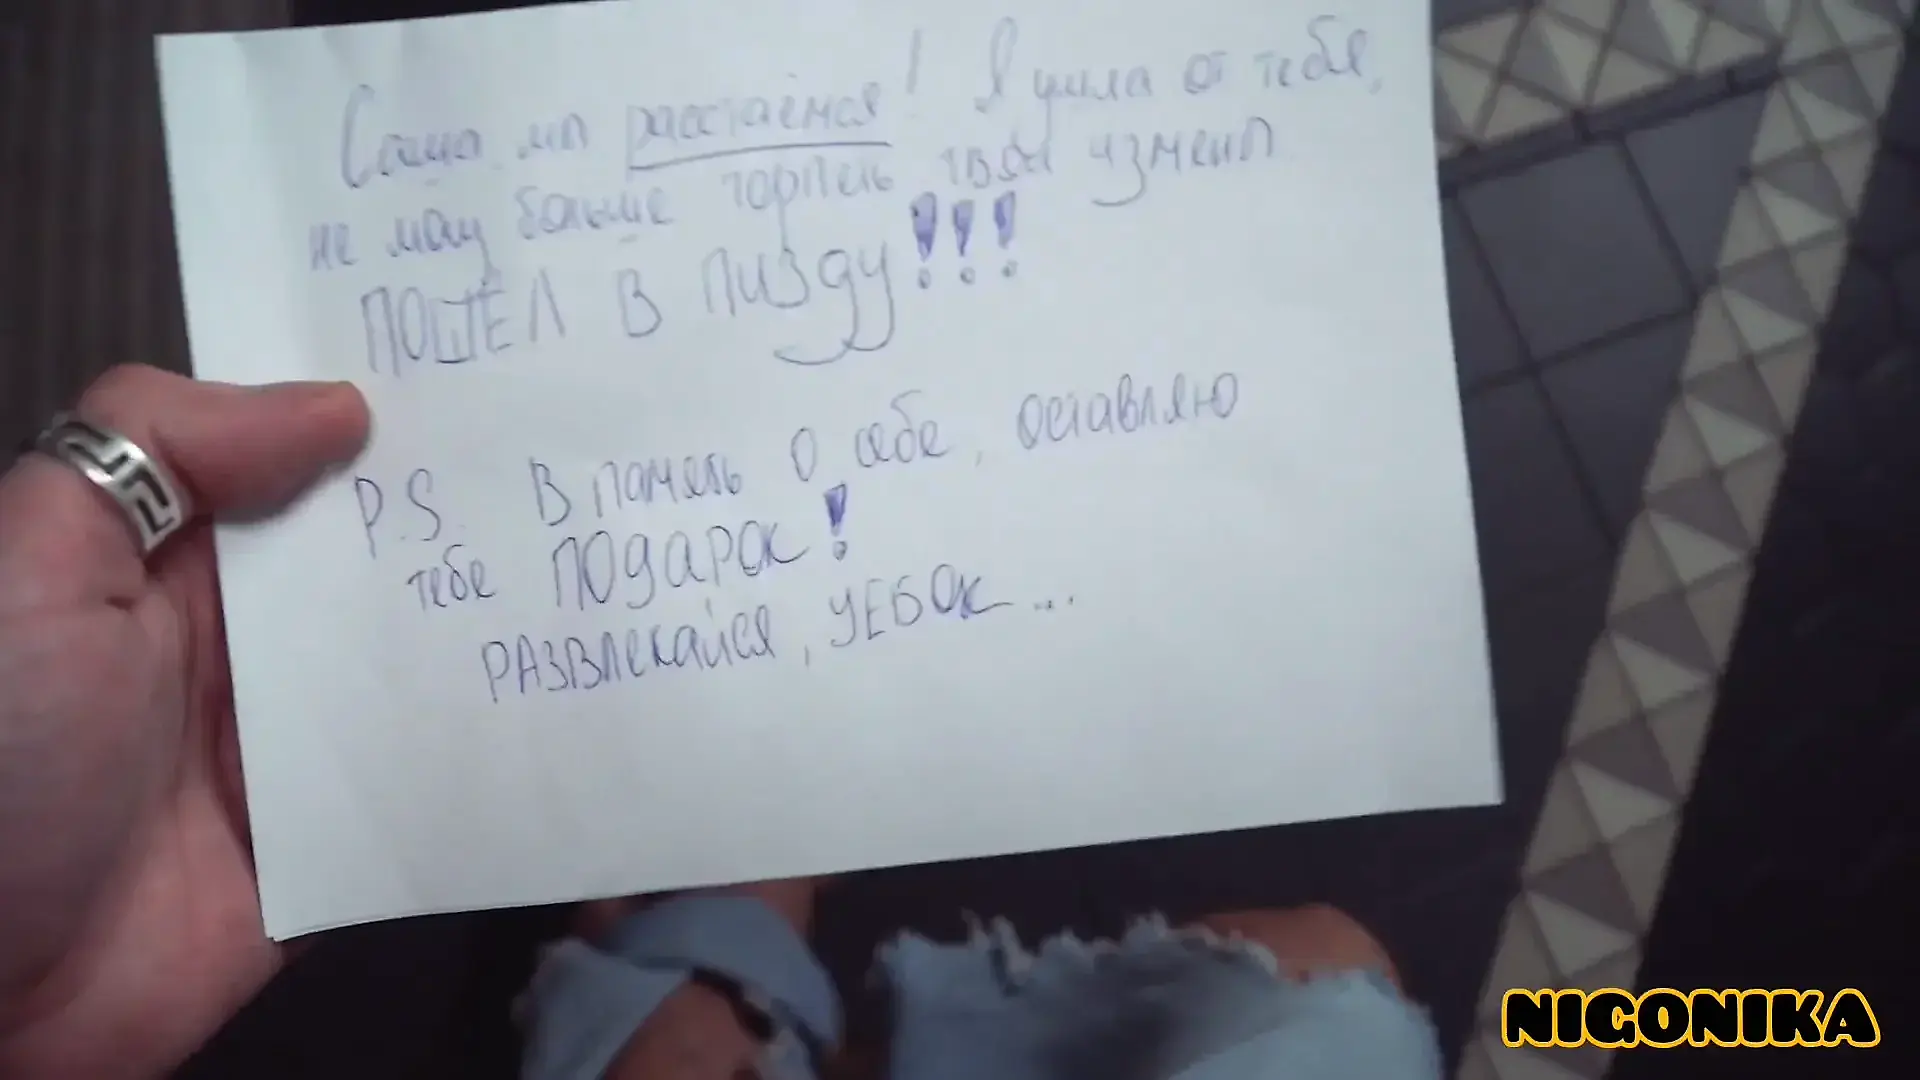 Саша мы расстаёмся! Я ушла от тебя,
не могу больше терпеть твои измены
ПОШЁЛ В ПИЗДУ!!!
P.S. В память о себе, оставляю
тебе ПОДАРОК!
РАЗВЛЕКАЙСЯ, УЕБОК...
NIGONIKA